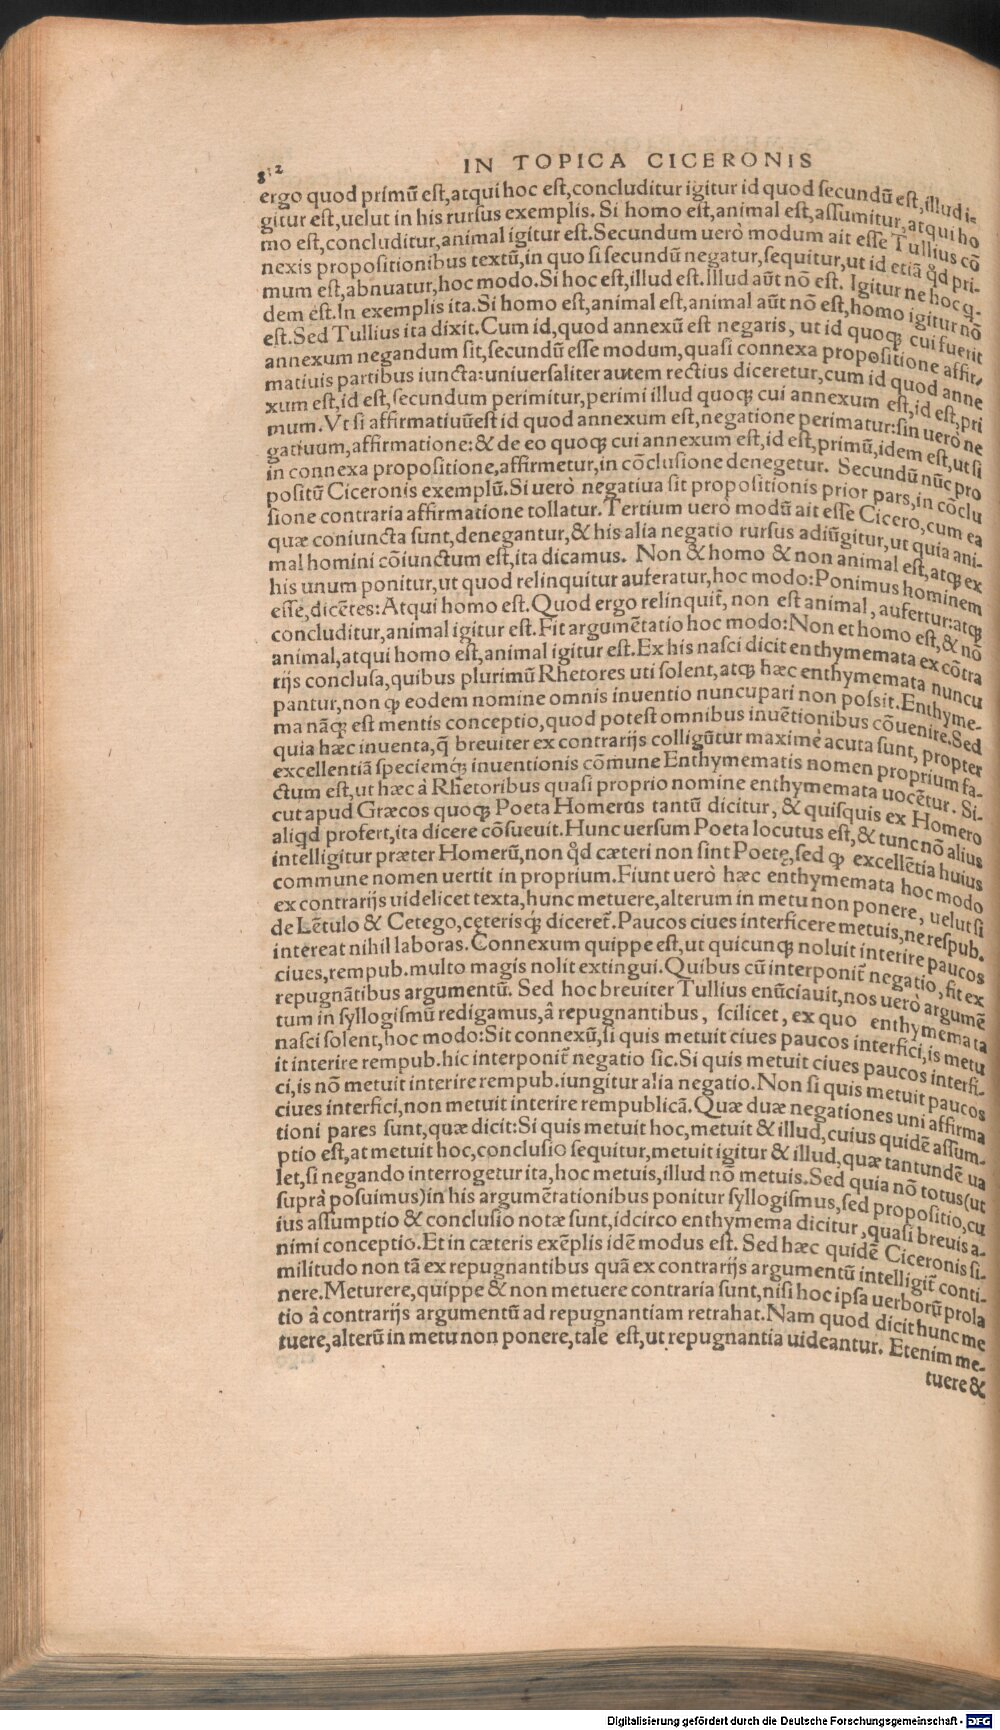 812 IN TOPICA CICERONIS
ergo quod primū est, atqui hoc est, concluditur igitur id quod secundū est, illud i-
gitur est, uelut in his rursus exemplis. Si homo est, animal est, assumitur, atqui ho
mo est, concluditur, animal igitur est. Secundum uerò modum ait esse Tullius cō
nexis propositionibus textū, in quo si secundū negatur, sequitur, ut id etiā qd pri-
mum est, abnuatur, hoc modo. Si hoc est, illud est. Illud aūt nō est. Igitur ne hoc q-
dem est. In exemplis ita. Si homo est, animal est, animal aūt nō est, homo igitur nō
est. Sed Tullius ita dixit. Cum id, quod annexū est negaris, ut id quoqꝫ cui fuerit
annexum negandum sit, secundū esse modum, quasi connexa propositione affir-
matiuis partibus iuncta: uniuersaliter autem rectius diceretur, cum id quod anne
xum est, id est, secundum perimitur, perimi illud quoqꝫ cui annexum est, id est, pri
mum. Vt si affirmatiuū est id quod annexum est, negatione perimatur: sin uerò ne
gatiuum, affirmatione: & de eo quoqꝫ cui annexum est, id est, primū, idem est, ut si
in connexa propositione, affirmetur, in cōclusione denegetur. Secundū nūc pro
positū Ciceronis exemplū. Si uerò negatiua sit propositionis prior pars, in cōclu
sione contraria affirmatione tollatur. Tertium uerò modū ait esse Cicero, cum ea
quæ coniuncta sunt, denegantur, & his alia negatio rursus adiūgitur, ut quia ani-
mal homini cōiunctum est, ita dicamus. Non & homo & non animal est, atqꝫ ex
his unum ponitur, ut quod relinquitur auferatur, hoc modo: Ponimus hominem
esse, dicētes: Atqui homo est. Quod ergo relinquit̃, non est animal, aufertur: atqꝫ
concluditur, animal igitur est. Fit argumētatio hoc modo: Non et homo est, & nō
animal, atqui homo est, animal igitur est. Ex his nasci dicit enthymemata ex cōtra
rijs conclusa, quibus plurimū Rhetores uti solent, atqꝫ hæc enthymemata nuncu
pantur, non ꝙ eodem nomine omnis inuentio nuncupari non possit. Enthyme-
ma nāqꝫ est mentis conceptio, quod potest omnibus inuētionibus cōuenire. Sed
quia hæc inuenta, q̄ breuiter ex contrarijs colligūtur maximè acuta sunt, propter
excellentiā speciemqꝫ inuentionis cōmune Enthymematis nomen proprium fa-
ctum est, ut hæc à Rhetoribus quasi proprio nomine enthymemata uocētur. Si-
cut apud Græcos quoqꝫ Poeta Homerus tantū dicitur, & quisquis ex Homero
aliqd profert, ita dicere cōsueuit. Hunc uersum Poeta locutus est, & tunc nō alius
intelligitur præter Homerū, non qd cæteri non sint Poetę, sed ꝙ excellētia huius
commune nomen uertit in proprium. Fiunt uerò hæc enthymemata hoc modo
ex contrarijs uidelicet texta, hunc metuere, alterum in metu non ponere, uelut si
de Lētulo & Cetego, cęterisqꝫ diceret̃. Paucos ciues interficere metuis, ne respub.
intereat nihil laboras. Connexum quippe est, ut quicunqꝫ noluit interire paucos
ciues, rempub. multo magis nolit extingui. Quibus cū interponit̃ negatio, fit ex
repugnātibus argumentū. Sed hoc breuiter Tullius enūciauit, nos uerò argumē
tum in syllogismū redigamus, à repugnantibus, scilicet, ex quo enthymemata
nasci solent, hoc modo: Sit connexū, si quis metuit ciues paucos interfici, is metu
it interire rempub. hic interponit̃ negatio sic. Si quis metuit ciues paucos interfi-
ci, is nō metuit interire rempub. iungitur alia negatio. Non si quis metuit paucos
ciues interfici, non metuit interire rempublicā. Quæ duæ negationes uni affirma
tioni pares sunt, quæ dicit: Si quis metuit hoc, metuit & illud, cuius quidē assum-
ptio est, at metuit hoc, conclusio sequitur, metuit igitur & illud, quæ tantundē ua
let, si negando interrogetur ita, hoc metuis, illud nō metuis. Sed quia nō totus (ut
suprà posuimus) in his argumētationibus ponitur syllogismus, sed propositio, cu
ius assumptio & conclusio notæ sunt, idcirco enthymema dicitur, quasi breuis a-
nimi conceptio. Et in cæteris exēplis idē modus est. Sed hæc quidē Ciceronis si-
militudo non tā ex repugnantibus quā ex contrarijs argumentū intelligit̃ conti-
nere. Meturere, quippe & non metuere contraria sunt, nisi hoc ipsa uerborū prola
tio à contrarijs argumentū ad repugnantiam retrahat. Nam quod dicit hunc me
tuere, alterū in metu non ponere, tale est, ut repugnantia uideantur. Etenim me-
tuere &
Digitalisierung gefördert durch die Deutsche Forschungsgemeinschaft - DFG